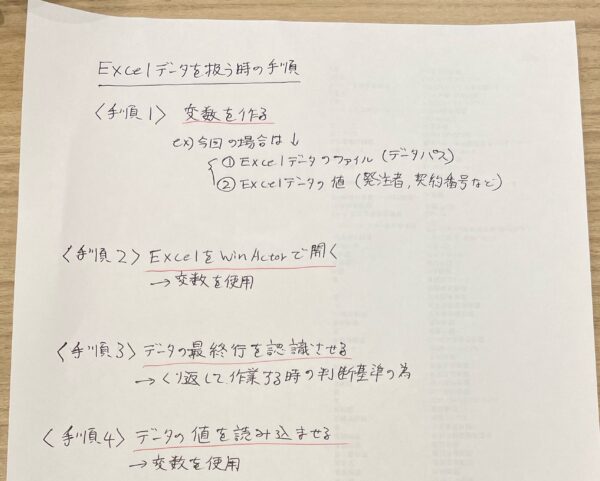 Excelデータを扱う時の手順
〈手順1〉 変数を作る
ex)今回の場合は↓
① Excelデータのファイル (データパス)
② Excelデータの値 (発注者,契約番号など)
〈手順2〉 ExcelをWinActorで開く
→変数を使用
〈手順3〉 データの最終行を認識させる
→くり返して作業する時の判断基準の為
〈手順4〉 データの値を読み込ませる
→変数を使用